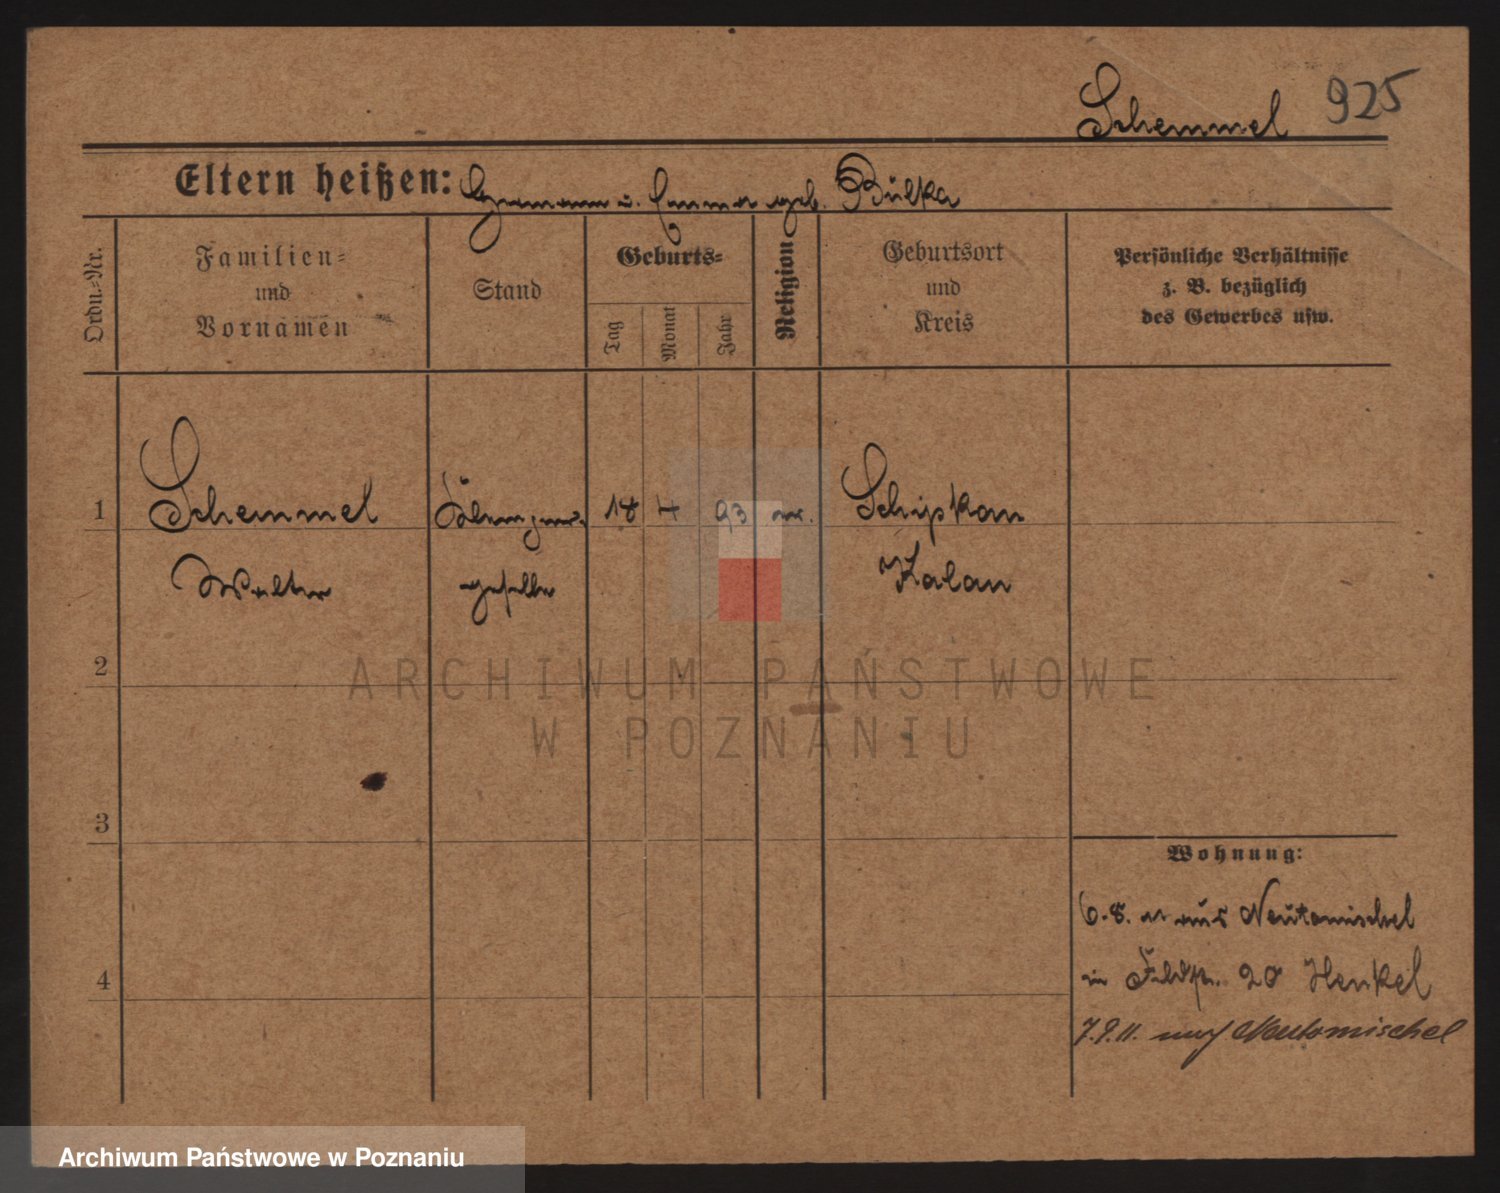 Schemmel 925
Eltern heißen: Hermann u. Emma geb. Bülka
Ordn.-Nr.
Familien-
und
Vornamen
Stand
Geburts-
Tag
Monat
Jahr
Religion
Geburtsort
und
Kreis
Persönliche Verhältnisse
z. B. bezüglich
des Gewerbes usw.
1 Schemmel 18 4 93 Schipkau
Walter geselle Kalau
2
3
4
Wohnung:
6.8. 11 aus Neutomischel
in 20 Henkel
7.9.11. nach Neutomischel
ARCHIWUM PAŃSTWOWE
W POZNANIU
Archiwum Państwowe w Poznaniu